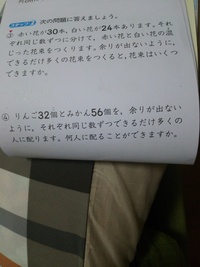 ステップ2 次の問題に答えましょう。
③ 赤い花が30本、白い花が24本あります。それ
ぞれ同じ数ずつに分けて、赤い花と白い花の混
じった花束をつくります。余りが出ないように、
できるだけ多くの花束をつくると、花束はいくつ
できますか。
④ りんご32個とみかん56個を、余りが出ない
ように、それぞれ同じ数ずつできるだけ多くの
人に配ります。何人に配ることができますか。